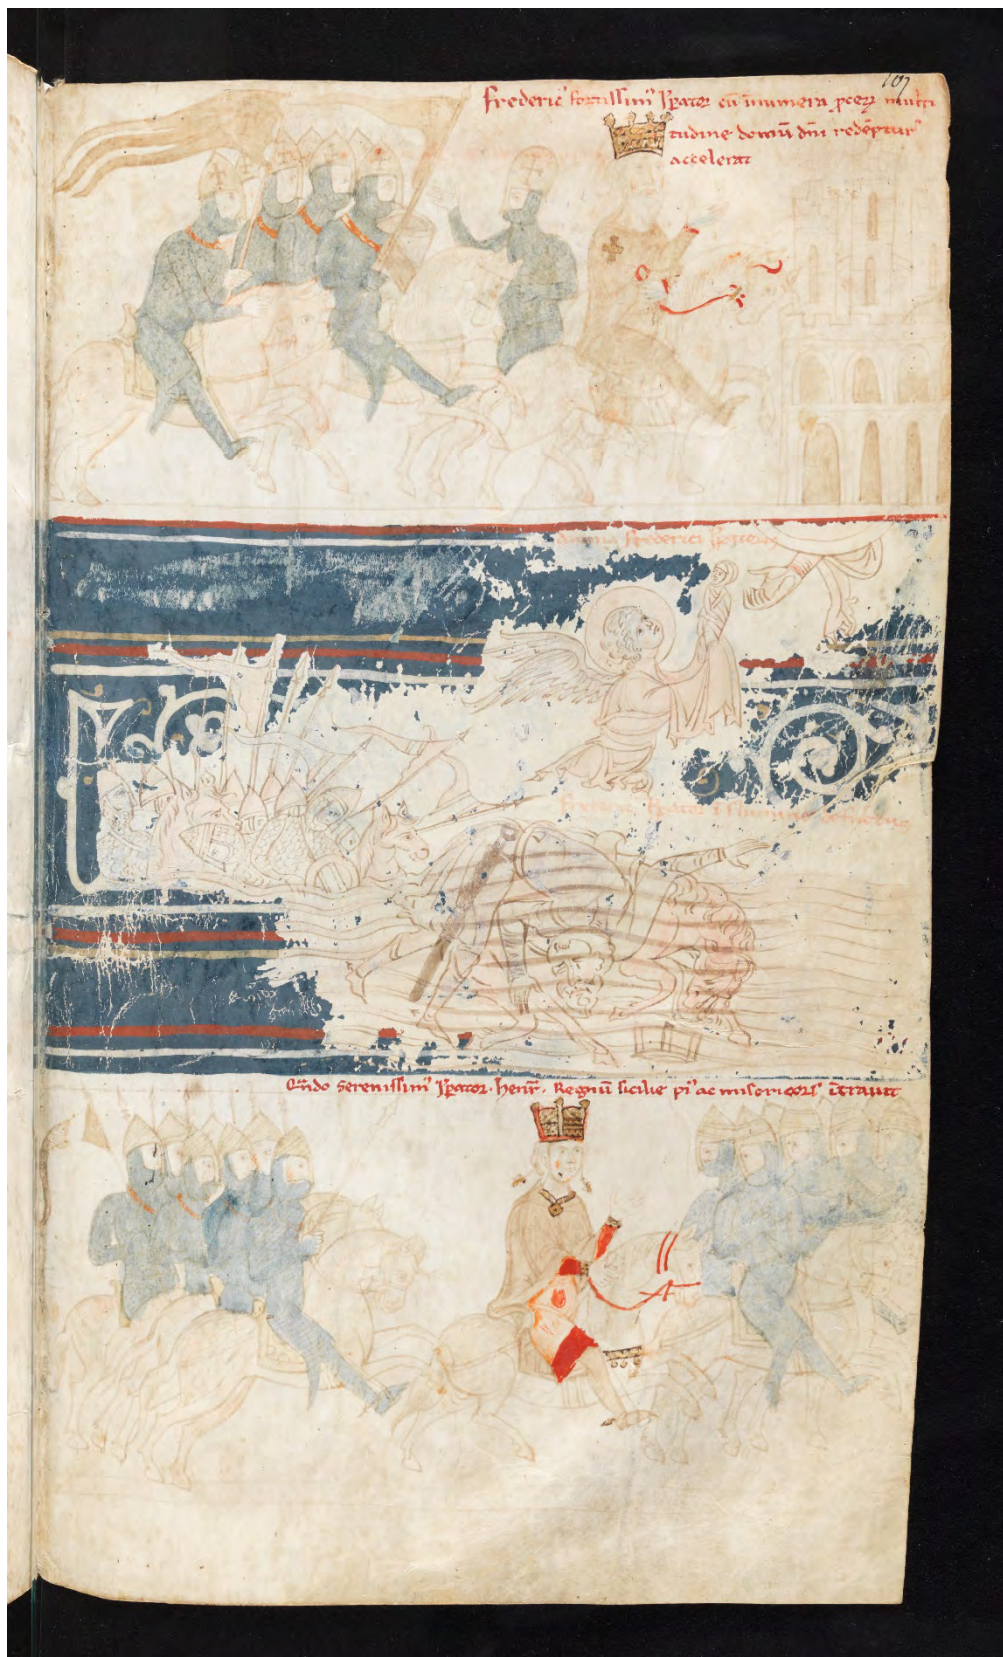 107
frederic' fortissim' Ip̄ator cū īnumera p̄cerꝝ multi
tudine domū dn̄i redēptur'
accelerat
Anima frederici Ip̄atoris
frederic' Ip̄ator ī flumine defunctus
Qn̄do serenissim' Ip̄ator · henr̄ · Regnū sicilie pi' ac misericors ītrauit